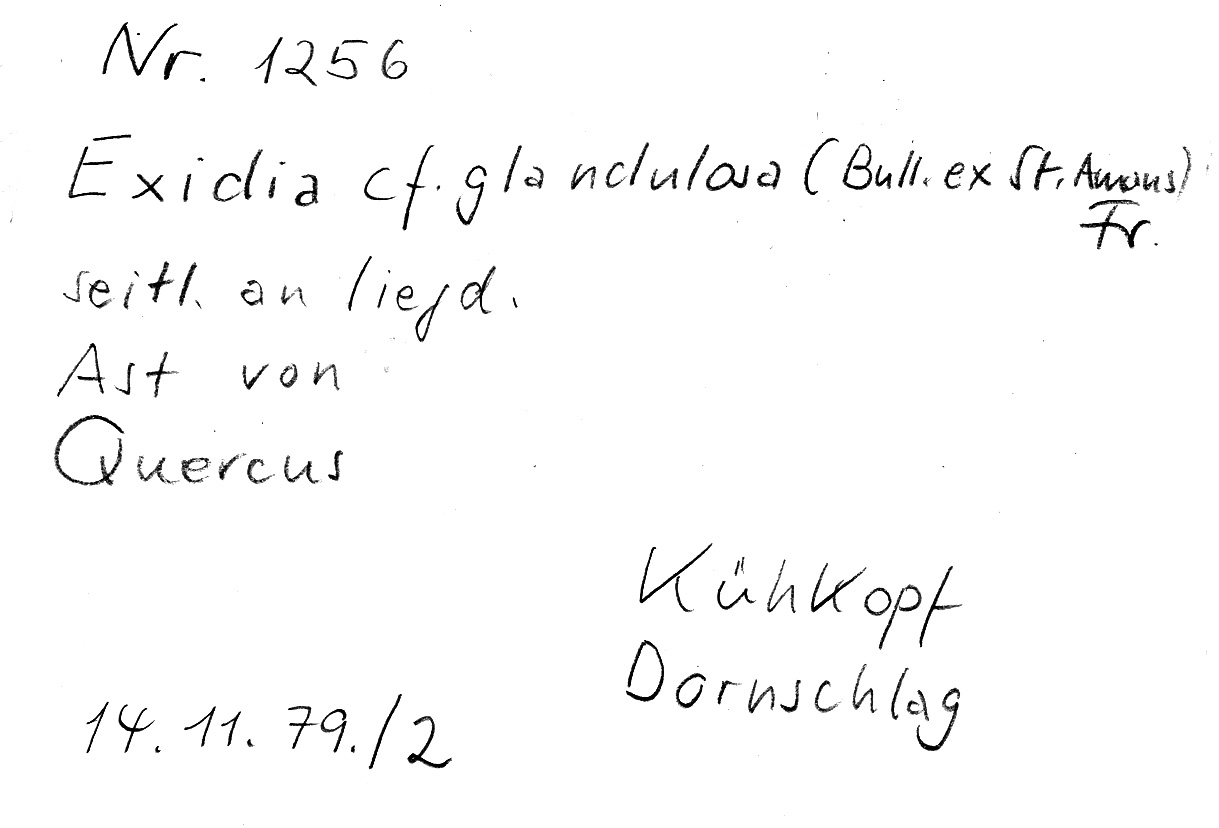 Nr. 1256
Exidia cf. glandulosa (Bull. ex St. Amans)
Fr.
seitl. an liegd.
Ast von
Quercus
Kühkopf
Dornschlag
14.11.79./2